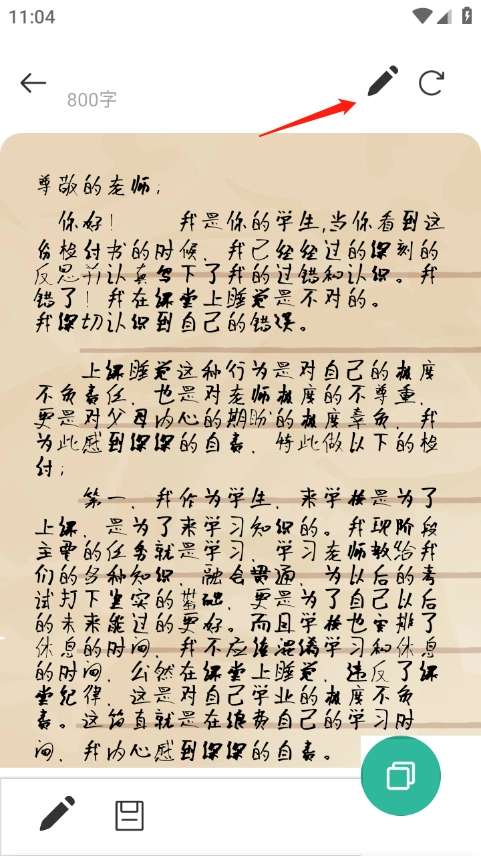 11:04
800字
尊敬的老师；
你好！ 我是你的学生,当你看到这
份检付书的时候，我已经经过的深刻的
反思并认真写下了我的过错和认识。我
错了！我在课堂上睡觉是不对的。
我深切认识到自己的错误。
上课睡觉这种行为是对自己的极度
不负责任，也是对老师极度的不尊重，
更是对父母内心的期盼的极度辜负，我
为此感到深深的自责，特此做以下的检
付；
第一，我作为学生，来学校是为了
上课，是为了来学习知识的。我现阶段
主要的任务就是学习，学习老师教给我
们的各种知识，融会贯通，为以后的考
试打下坚实的基础，更是为了自己以后
的未来能过的更好。而且学校也安排了
休息的时间，我不应该混淆学习和休息
的时间，公然在课堂上睡觉，违反了课
堂纪律，这是对自己学业的极度不负
责。这简直就是在浪费自己的学习时
间，我内心感到深深的自责。